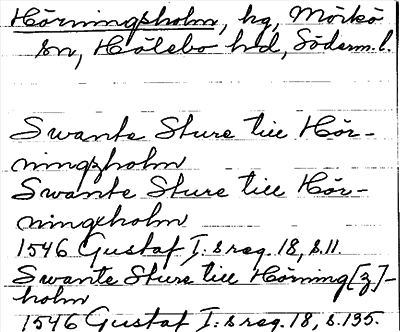 Hörningsholm, hg, Mörkö
sn, Hölebo hd, Söderm. l.
Swante Sture till Hör-
ningzholm
Swante Sture till Hör-
ningxholm
1546 Gustaf I:s reg. 18, s. 11.
Swante Sture till Hörning[z]-
holm
1546 Gustaf I:s reg. 18, s. 135.